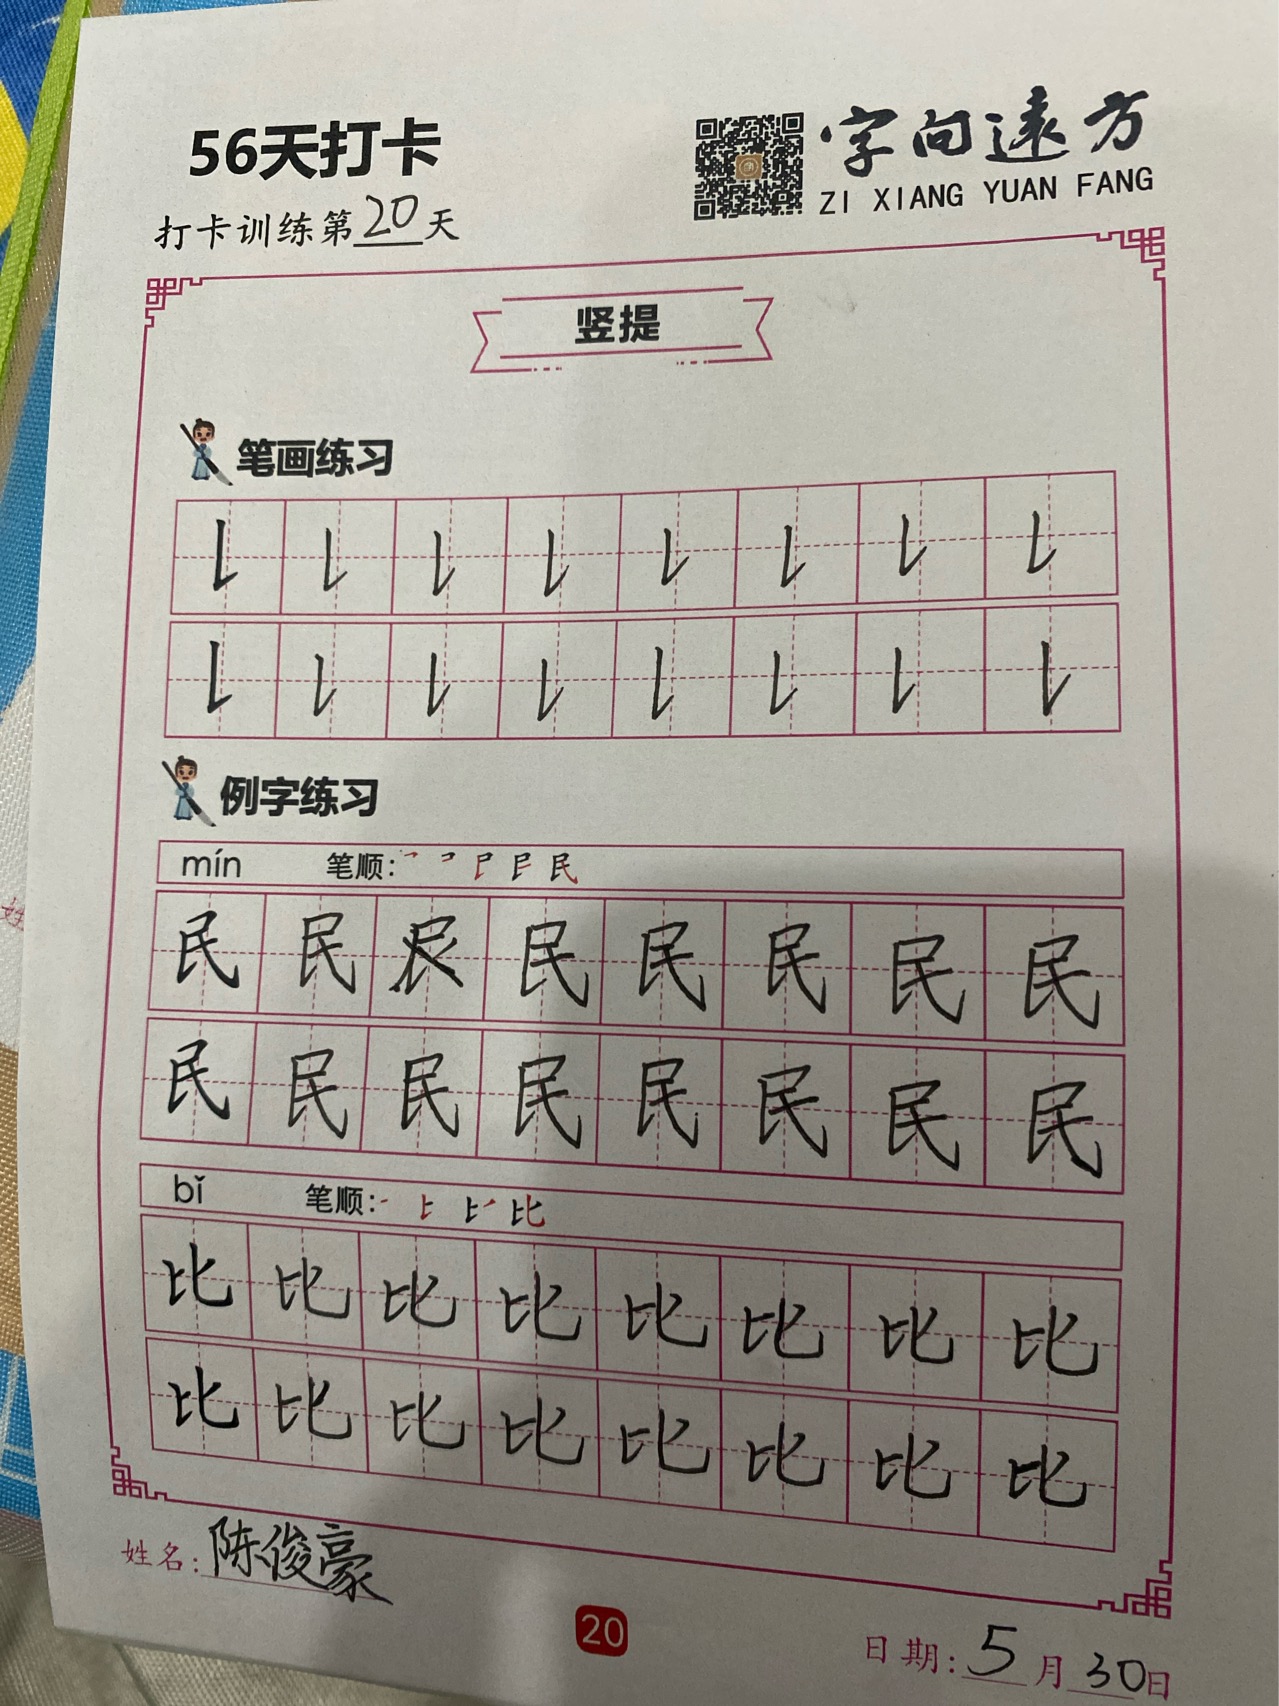 56天打卡
字向遠方
ZI XIANG YUAN FANG
打卡训练第20天
竖提
笔画练习
例字练习
mín 笔顺:
民 民 民 民 民 民 民
民 民 民 民 民 民 民 民
bǐ 笔顺:
比 比 比 比 比 比 比 比
比 比 比 比 比 比 比 比
姓名:陈俊豪
20
日期:5月30日